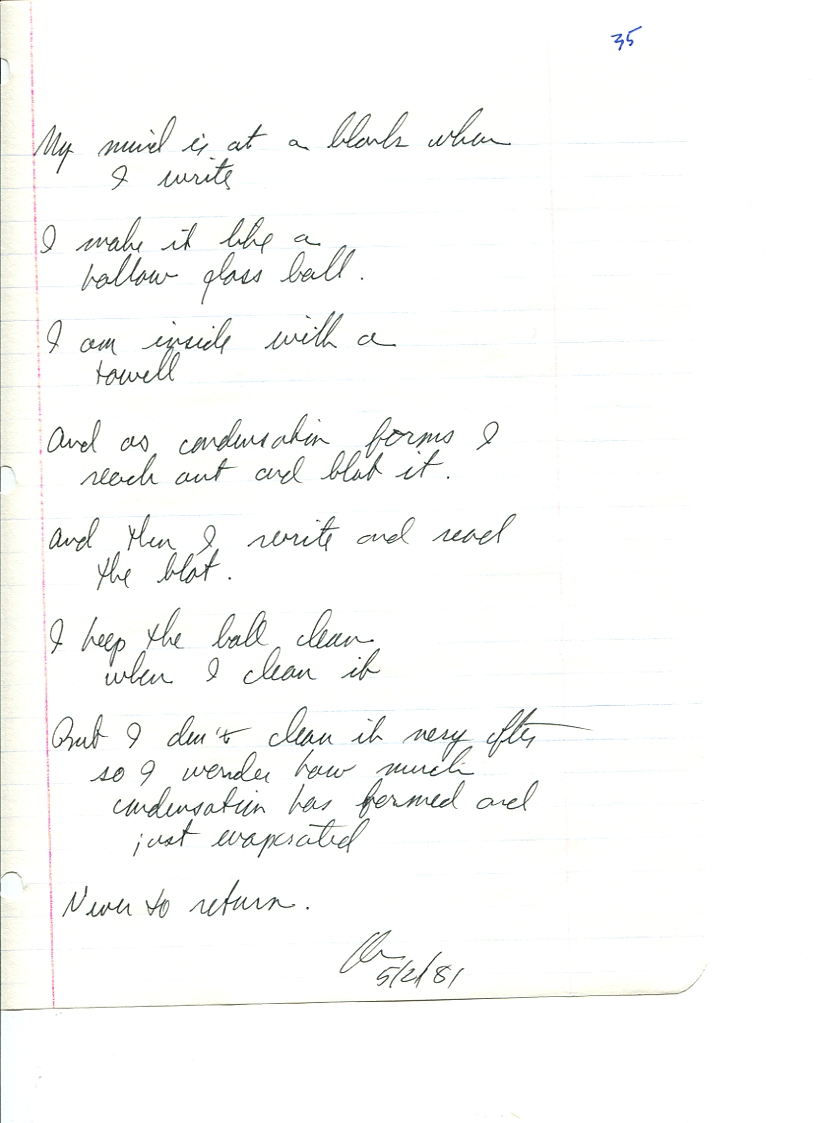 35
My mind is at a blank when
I write
I make it like a
hollow glass ball.
I am inside with a
towell
And as condensation forms I
reach out and blot it.
And then I rewrite and read
the blot.
I keep the ball clean
when I clean it
But I don't clean it very often
so I wonder how much
condensation has formed and
just evaporated
Never to return.
5/2/81